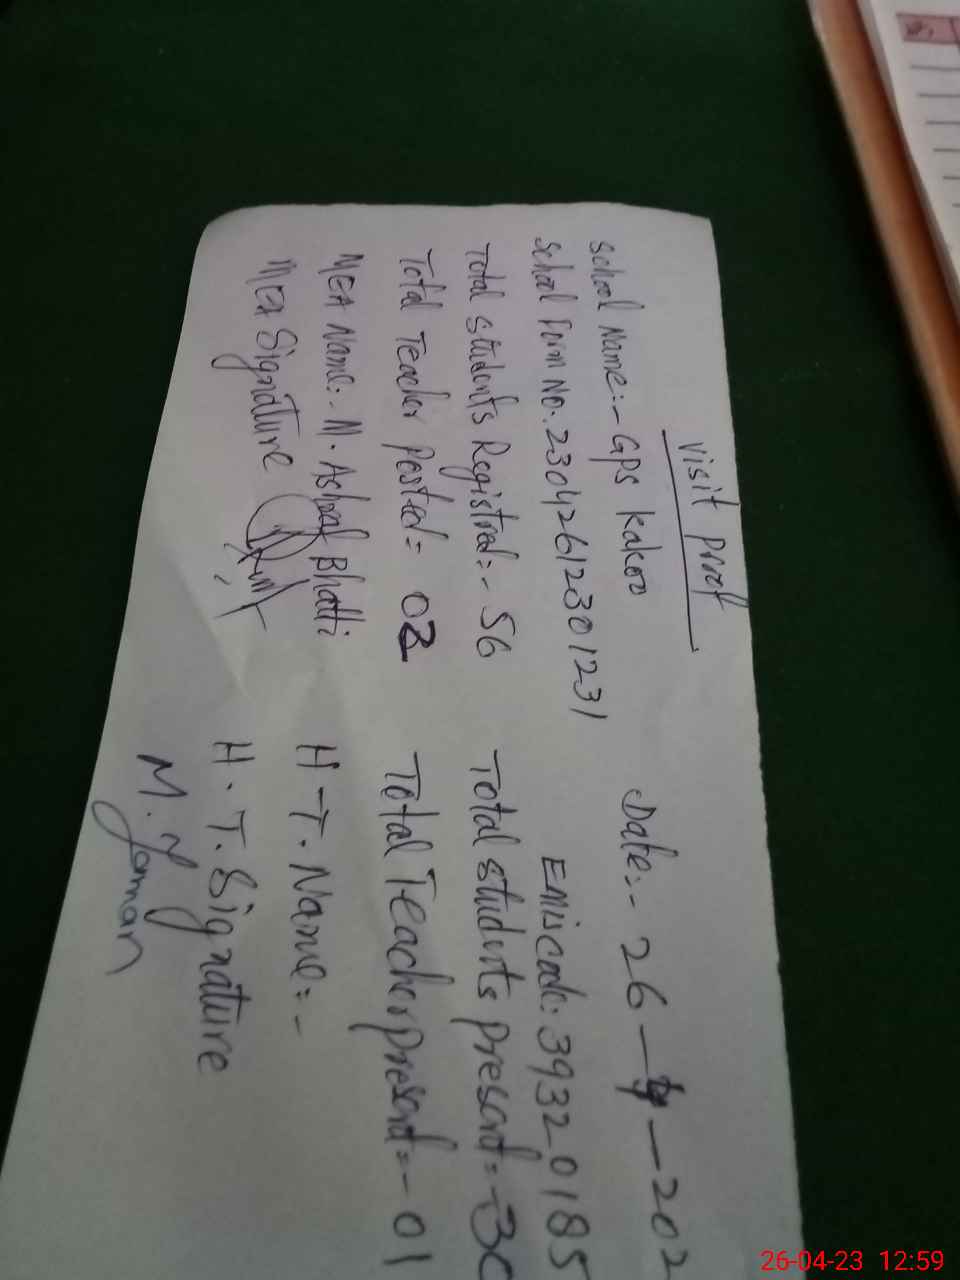 visit proof
School Name:- GPS Kakoo Date:- 26-4-202
School Form No:. 23042612301231 Emiscode: 39320185
Total Students Registrad=- 56 Total students present=-30
Total Teacher Posted= 02 Total Teacher present=-01
MEA Name:- M. Ashraf Bhatti H-T. Name=-
MEA Signature H. T. Signature
M.
26-04-23 12:59